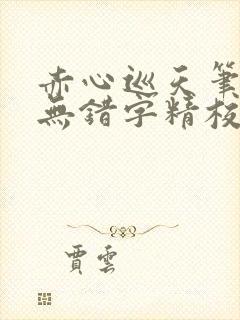 赤心巡天筆
無錯字精校
賈雲